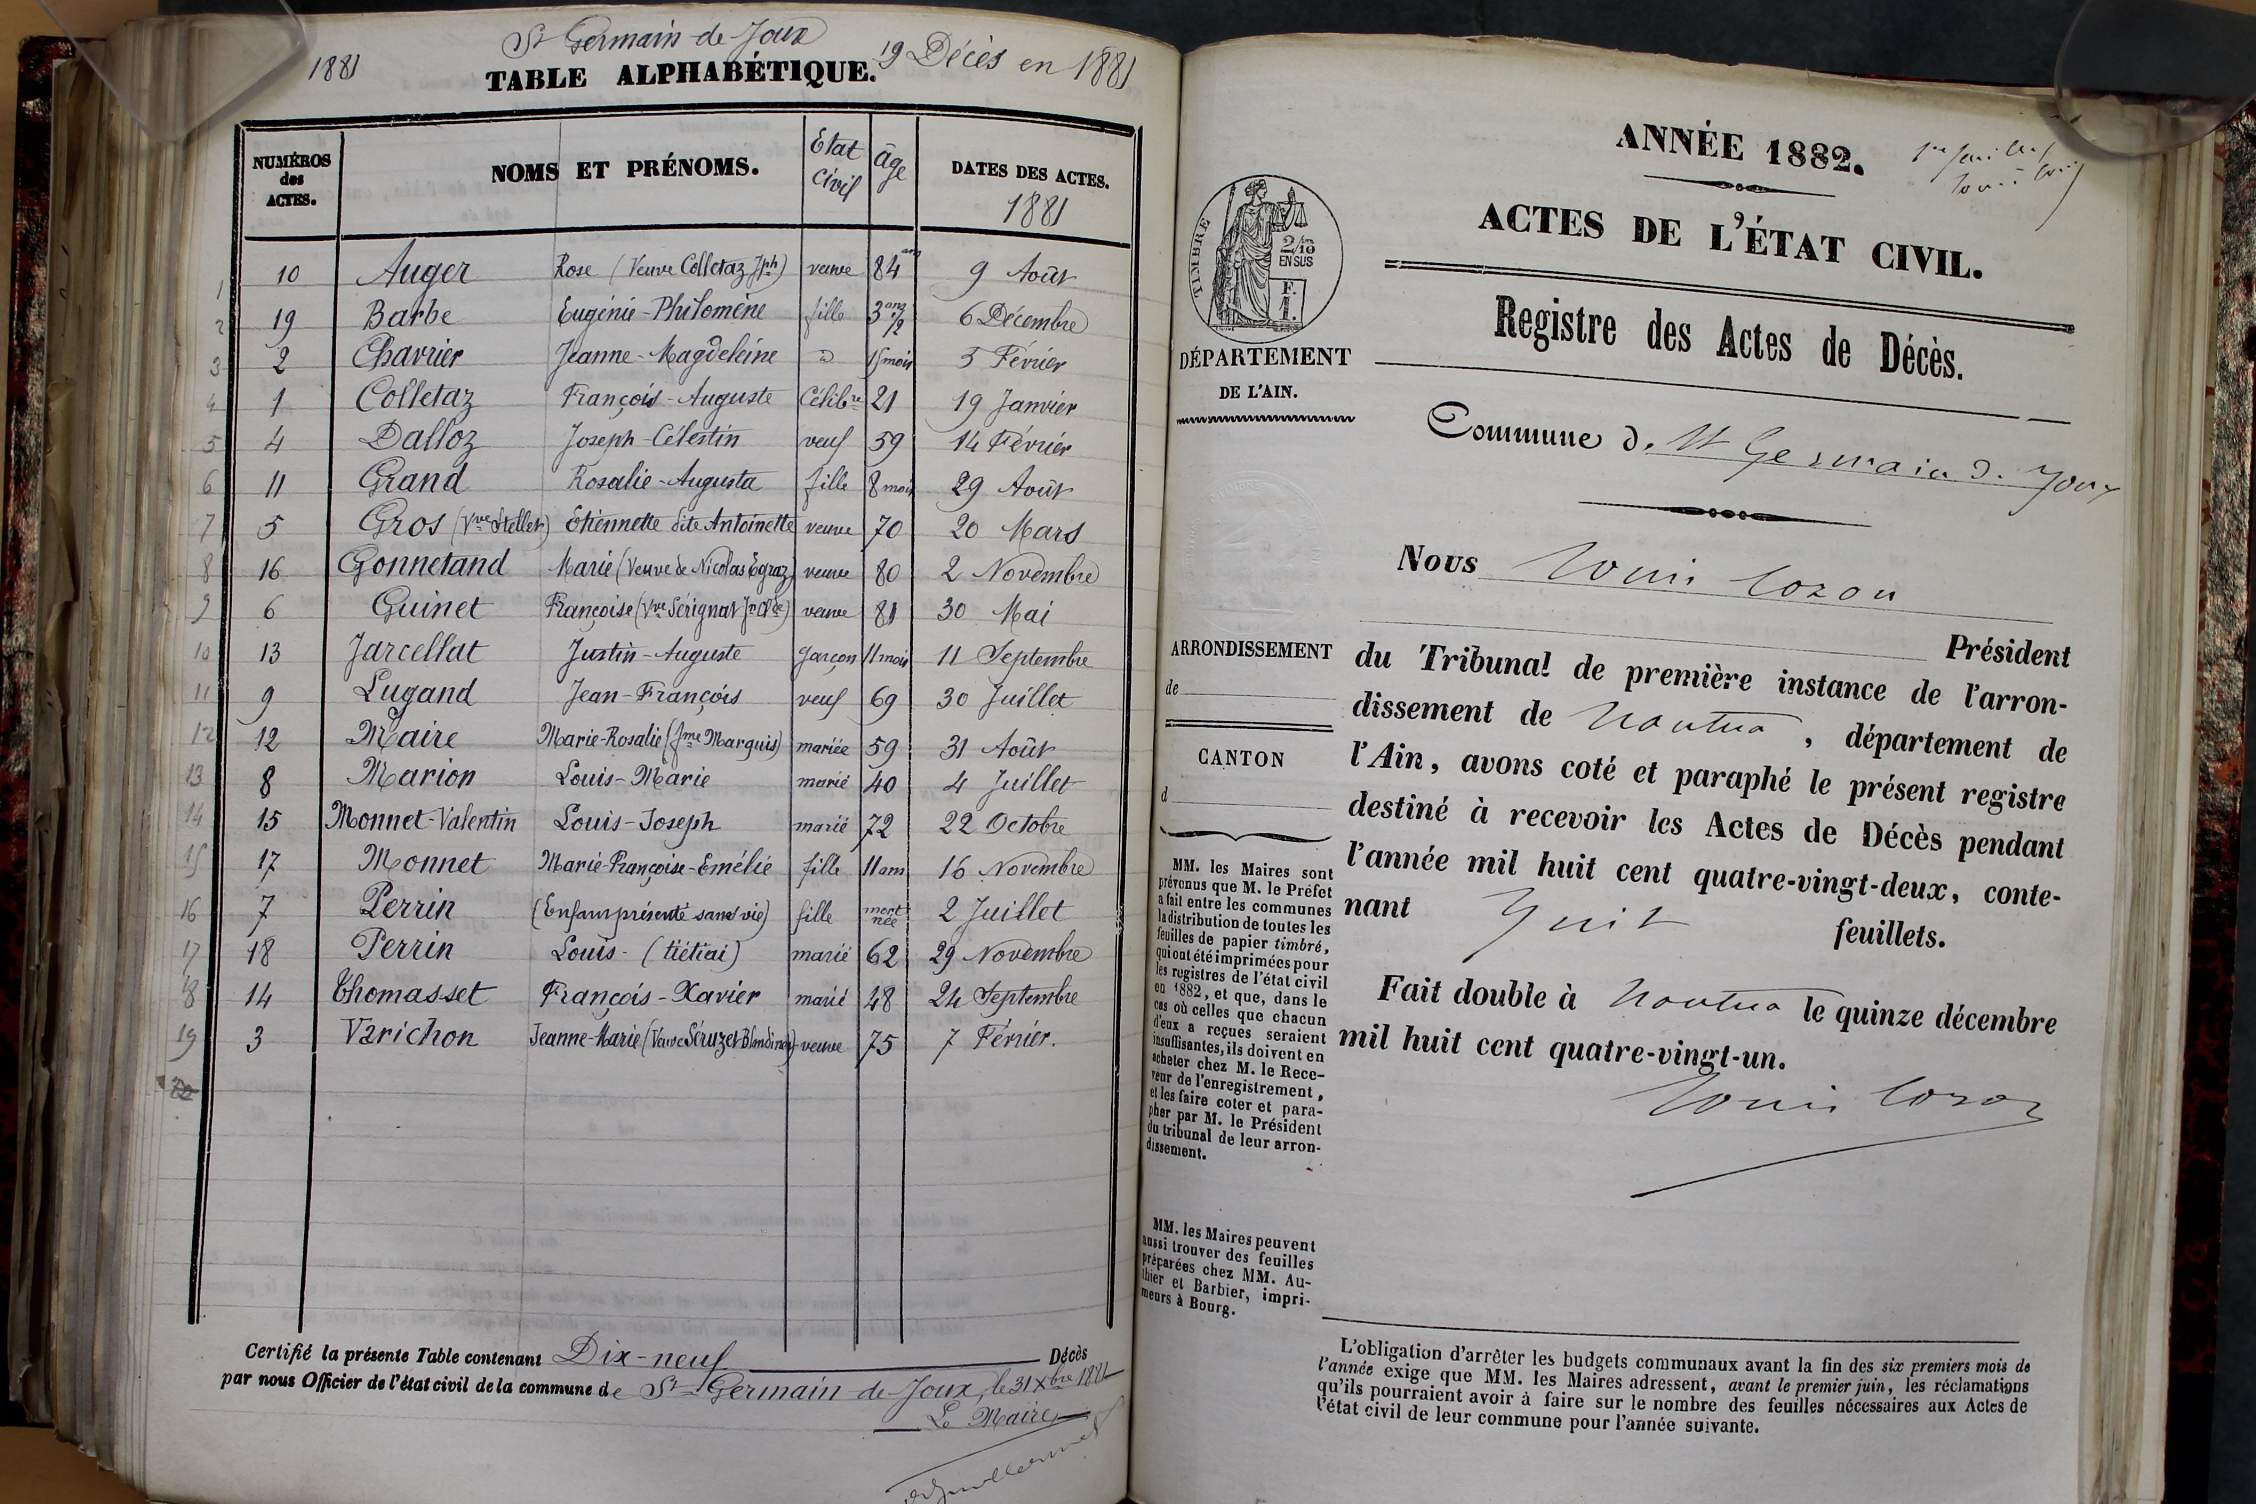 St Germain-de-Joux
1881
19 Décès en 1881
TABLE ALPHABÉTIQUE.
NUMÉROS des ACTES. NOMS ET PRÉNOMS. Etat Civil âge DATES DES ACTES.
1881
1 10 Auger Rose (Veuve Colletaz Jph) veuve 84 ans 9 Août
2 19 Barbe Eugénie-Philomène fille 3 ans 1/2 6 Décembre
3 2 Chavrier Jeanne-Magdeleine d 15 mois 5 Février
4 1 Colletaz François-Auguste Célibre 21 19 Janvier
5 4 Dalloz Joseph-Célestin veuf 59 14 Février
6 11 Grand Rosalie-Augusta fille 8 mois 29 Août
7 5 Gros (Vve Stellet) Etiennette dite Antoinette veuve 70 20 Mars
8 16 Gonnetand Marie (Veuve de Nicolas Egraz) veuve 80 2 Novembre
9 6 Guinet Françoise (Vve Sérignat Jn Cde) veuve 81 30 Mai
10 13 Jarcellat Justin-Auguste garçon 11 mois 11 Septembre
11 9 Lugand Jean-François veuf 69 30 Juillet
12 12 Maire Marie-Rosalie (fme Marquis) mariée 59 31 Août
13 8 Marion Louis-Marie marié 40 4 Juillet
14 15 Monnet-Valentin Louis-Joseph marié 72 22 Octobre
15 17 Monnet Marie-Françoise-Emélie fille 11 ans 16 Novembre
16 7 Perrin (Enfant présenté sans vie) fille mort née 2 Juillet
17 18 Perrin Louis- (tiétiai) marié 62 29 Novembre
18 14 Thomasset François-Xavier marié 48 24 Septembre
19 3 Varichon Jeanne-Marie (Veuve Séruzet Blandine) veuve 75 7 Février.
20
Certifié la présente Table contenant Dix-neuf Décès
par nous Officier de l'état civil de la commune de St-Germain-de-Joux, le 31 Xbre 1881
Le Maire
ANNÉE 1882.
ACTES DE L'ÉTAT CIVIL.
TIMBRE
2/10 EN SUS
F. 1.
DÉPARTEMENT
DE L'AIN.
Registre des Actes de Décès.
Commune d. St Germain d. Joux
Nous Louis Cozon
Président
ARRONDISSEMENT
de
CANTON
d
du Tribunal de première instance de l'arron-
dissement de Nantua, département de
l'Ain, avons coté et paraphé le présent registre
destiné à recevoir les Actes de Décès pendant
l'année mil huit cent quatre-vingt-deux, conte-
nant huit feuillets.
Fait double à Nantua le quinze décembre
mil huit cent quatre-vingt-un.
Louis Cozon
MM. les Maires sont
prévenus que M. le Préfet
a fait entre les communes
la distribution de toutes les
feuilles de papier timbré,
qui ont été imprimées pour
les registres de l'état civil
en 1882, et que, dans le
cas où celles que chacun
d'eux a reçues seraient
insuffisantes, ils doivent en
acheter chez M. le Rece-
veur de l'enregistrement,
et les faire coter et para-
pher par M. le Président
du tribunal de leur arron-
dissement.
MM. les Maires peuvent
aussi trouver des feuilles
préparées chez MM. Au-
thier et Barbier, impri-
meurs à Bourg.
L'obligation d'arrêter les budgets communaux avant la fin des six premiers mois de
l'année exige que MM. les Maires adressent, avant le premier juin, les réclamations
qu'ils pourraient avoir à faire sur le nombre des feuilles nécessaires aux Actes de
l'état civil de leur commune pour l'année suivante.